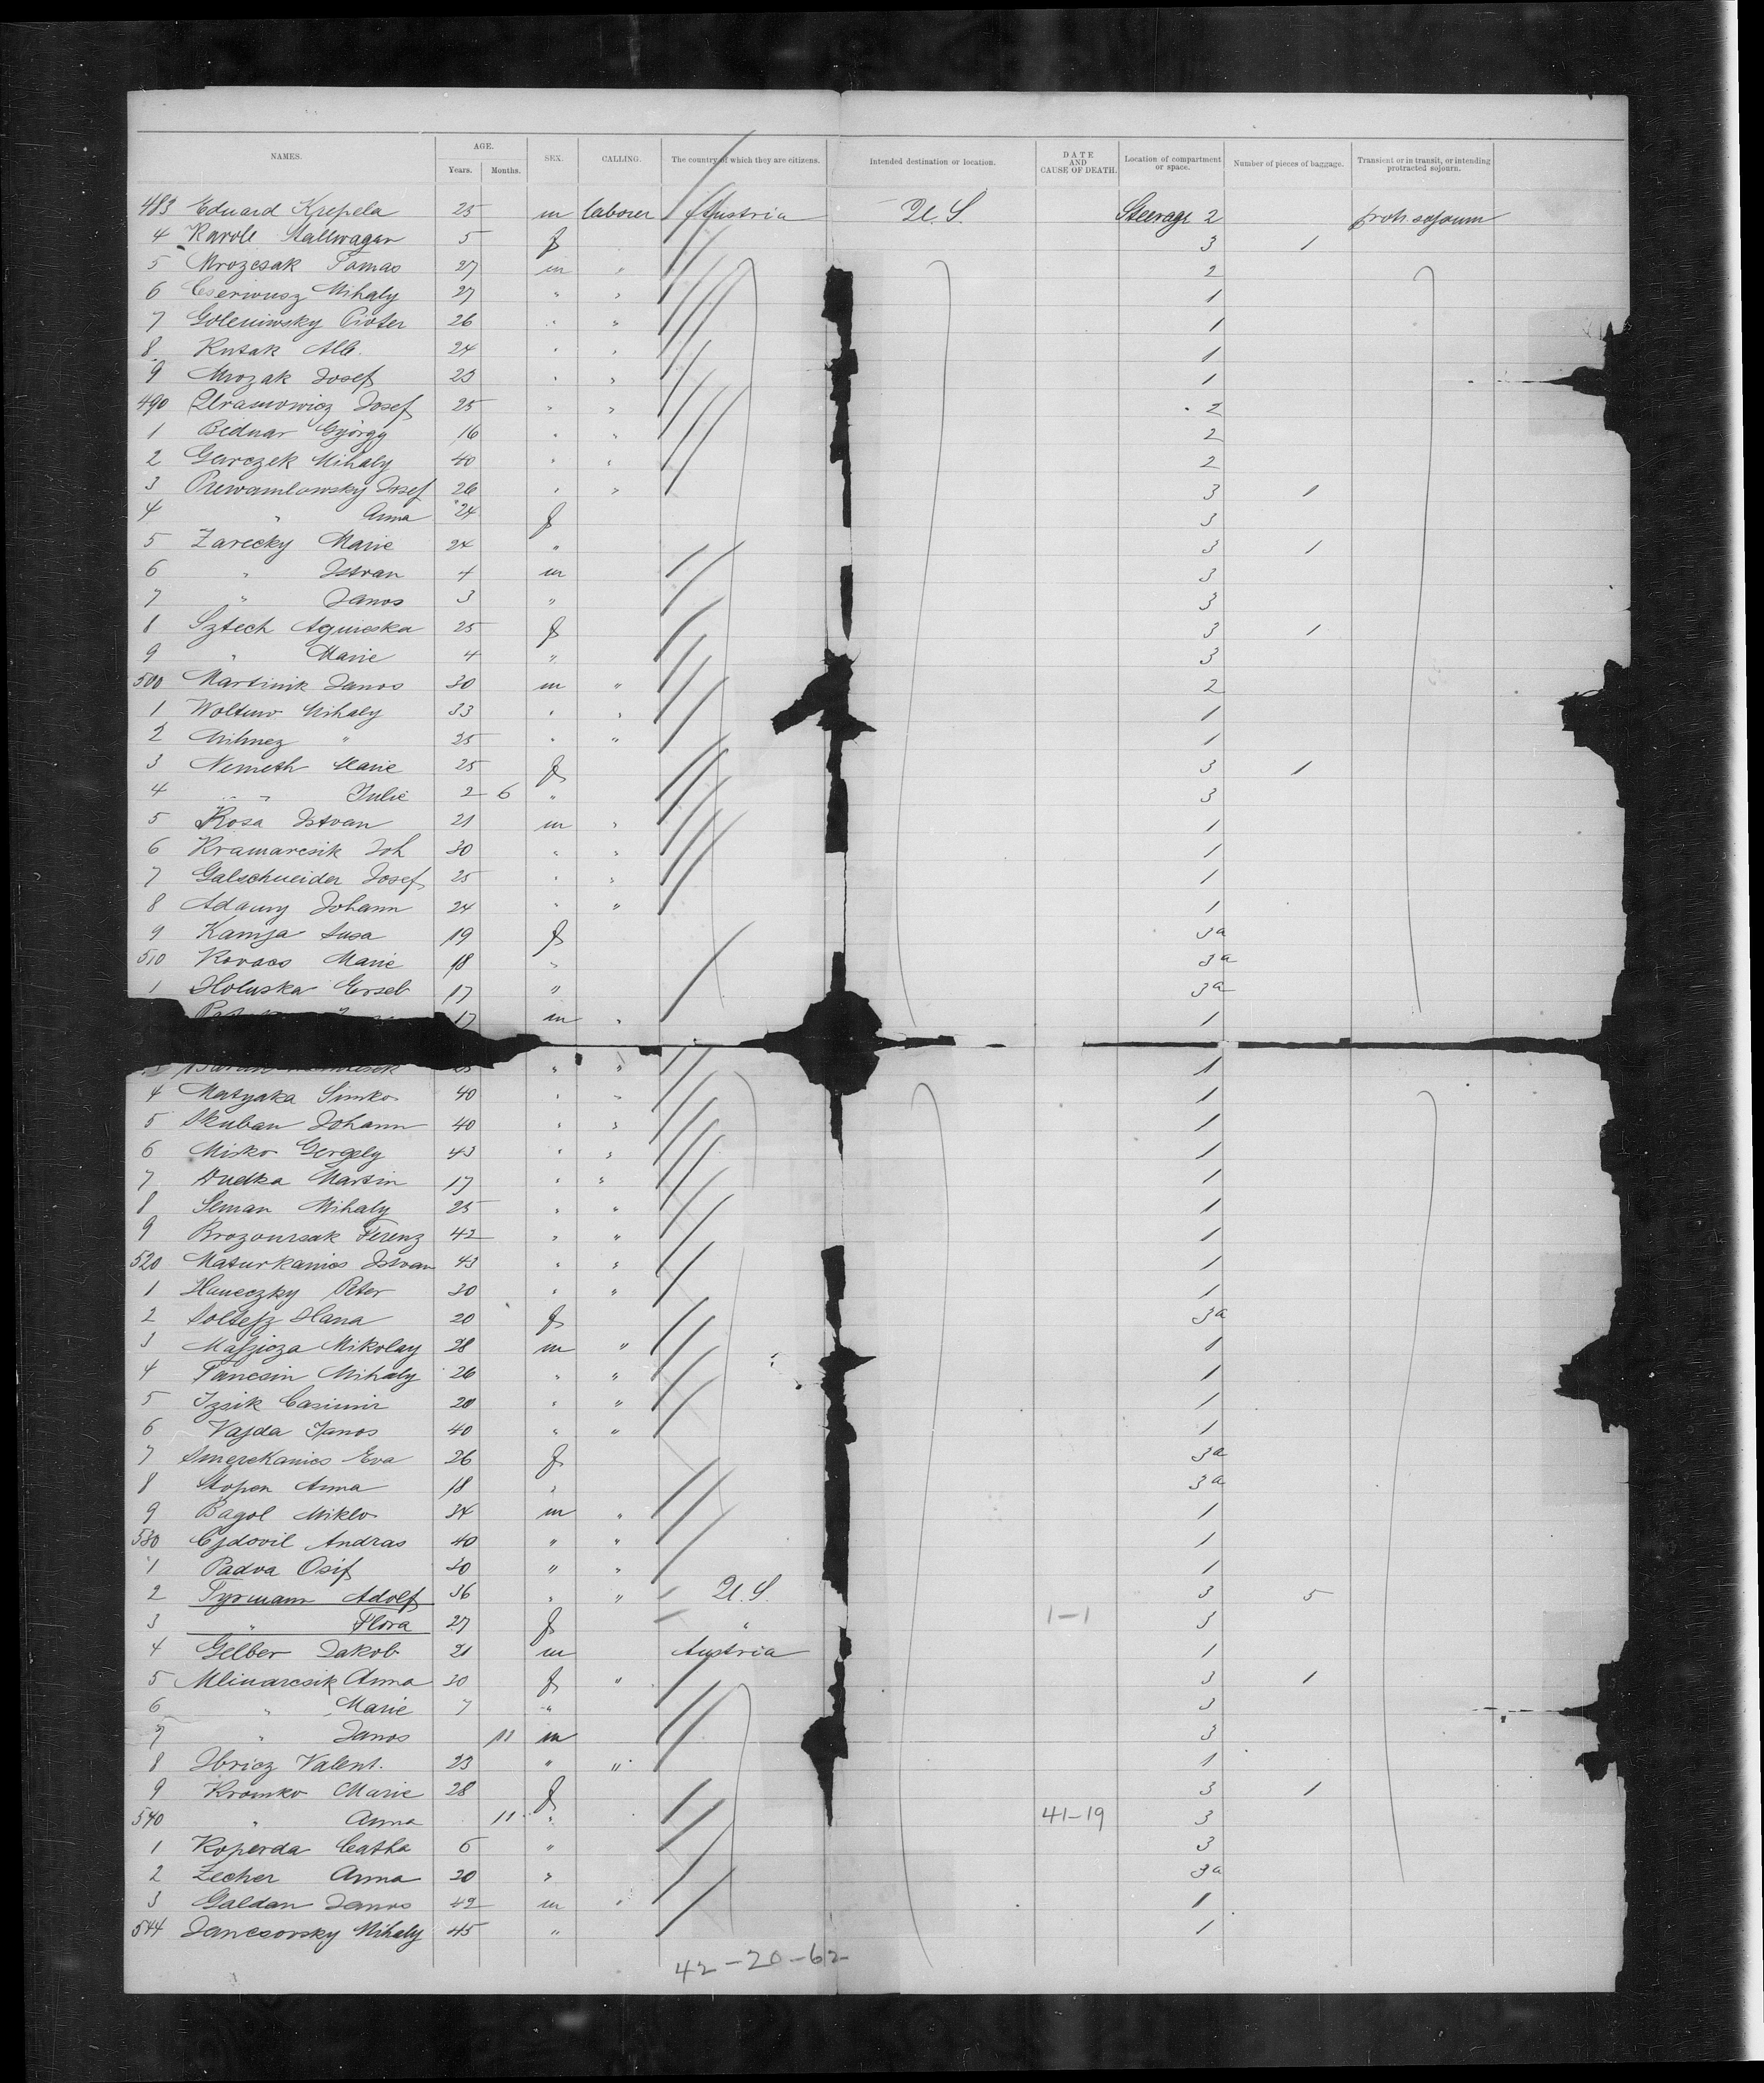 NAMES. AGE. SEX. CALLING. The country of which they are citizens. Intended destination or location. DATE AND CAUSE OF DEATH. Location of compartment or space. Number of pieces of baggage. Transient or in transit, or intending protracted sojourn.
Years. Months.
483 Eduard Krepela 25 m laborer Austria U.S. Steerage 2 protr. sojourn
4 Karole Stallwagen 5 f 3 1
5 Mrozcsak Tomas 27 m " 2
6 Cseriwusz Mihaly 27 " " 1
7 Goleniwsky Pioter 26 " " 1
8 Kutak Alb. 24 " " 1
9 Mrozak Josef 23 " " 1
490 Abramowicz Josef 25 " " 2
1 Bednar György 16 " " 2
2 Garczek Mihaly 40 " " 2
3 Josef 26 " " 3 1
4 " Anna 24 f 3
5 Zarecky Marie 24 " 3 1
6 " Istvan 4 m 3
7 " Janos 3 " 3
8 Sztech Agnieska 25 f 3 1
9 " Marie 4 " 3
500 Martinik Janos 30 m " 2
1 Mihaly 33 " " 1
2 " 25 " " 1
3 Nemeth Marie 25 f 3 1
4 " Julie 2 6 " 3
5 Kosa Istvan 21 m " 1
6 Kramarcsik Joh 30 " " 1
7 Galschneider Josef 25 " " 1
8 Adamy Johann 24 " " 1
9 Kamja Susa 19 f 3a
510 Kovacs Marie 18 " 3a
1 Holuska Erseb 17 " 3a
17 m " 1
" " 1
4 Matyaka Simko 40 " " 1
5 Skuban Johann 40 " " 1
6 Misko Gergely 43 " " 1
7 Dudka Martin 17 " " 1
8 Seman Mihaly 25 " " 1
9 Ferenz 42 " " 1
520 Maturkanics Istvan 43 " " 1
1 Haneczky Peter 30 " " 1
2 Soltesz Hana 20 f 3a
3 Mikolay 28 m " 1
4 Tancsin Mihaly 26 " " 1
5 Izsik Casimir 20 " " 1
6 Vajda Janos 40 " " 1
7 Smerekanics Eva 26 f 3a
8 Stopen Anna 18 " 3a
9 Bagol Miklo 34 m " 1
530 Andras 40 " " 1
1 Padva Osif 30 " " 1
2 Tyrmann Adolf 36 " " U.S. 3 5
3 " Flora 27 f " 1-1 3
4 Gelber Jakob 21 m Austria 1
5 Mlinarcsik Anna 30 f " 3 1
6 " Marie 7 " 3
7 " Janos 11 m 3
8 Valent. 23 " " 1
9 Kromko Marie 28 f 3 1
540 " Anna 11 " 41-19 3
1 Koperda Catha 6 " 3
2 Zecher Anna 20 " 3a
3 Galdan Janos 42 m " 1
544 Jancsovsky Mihaly 45 " 1
42-20-62